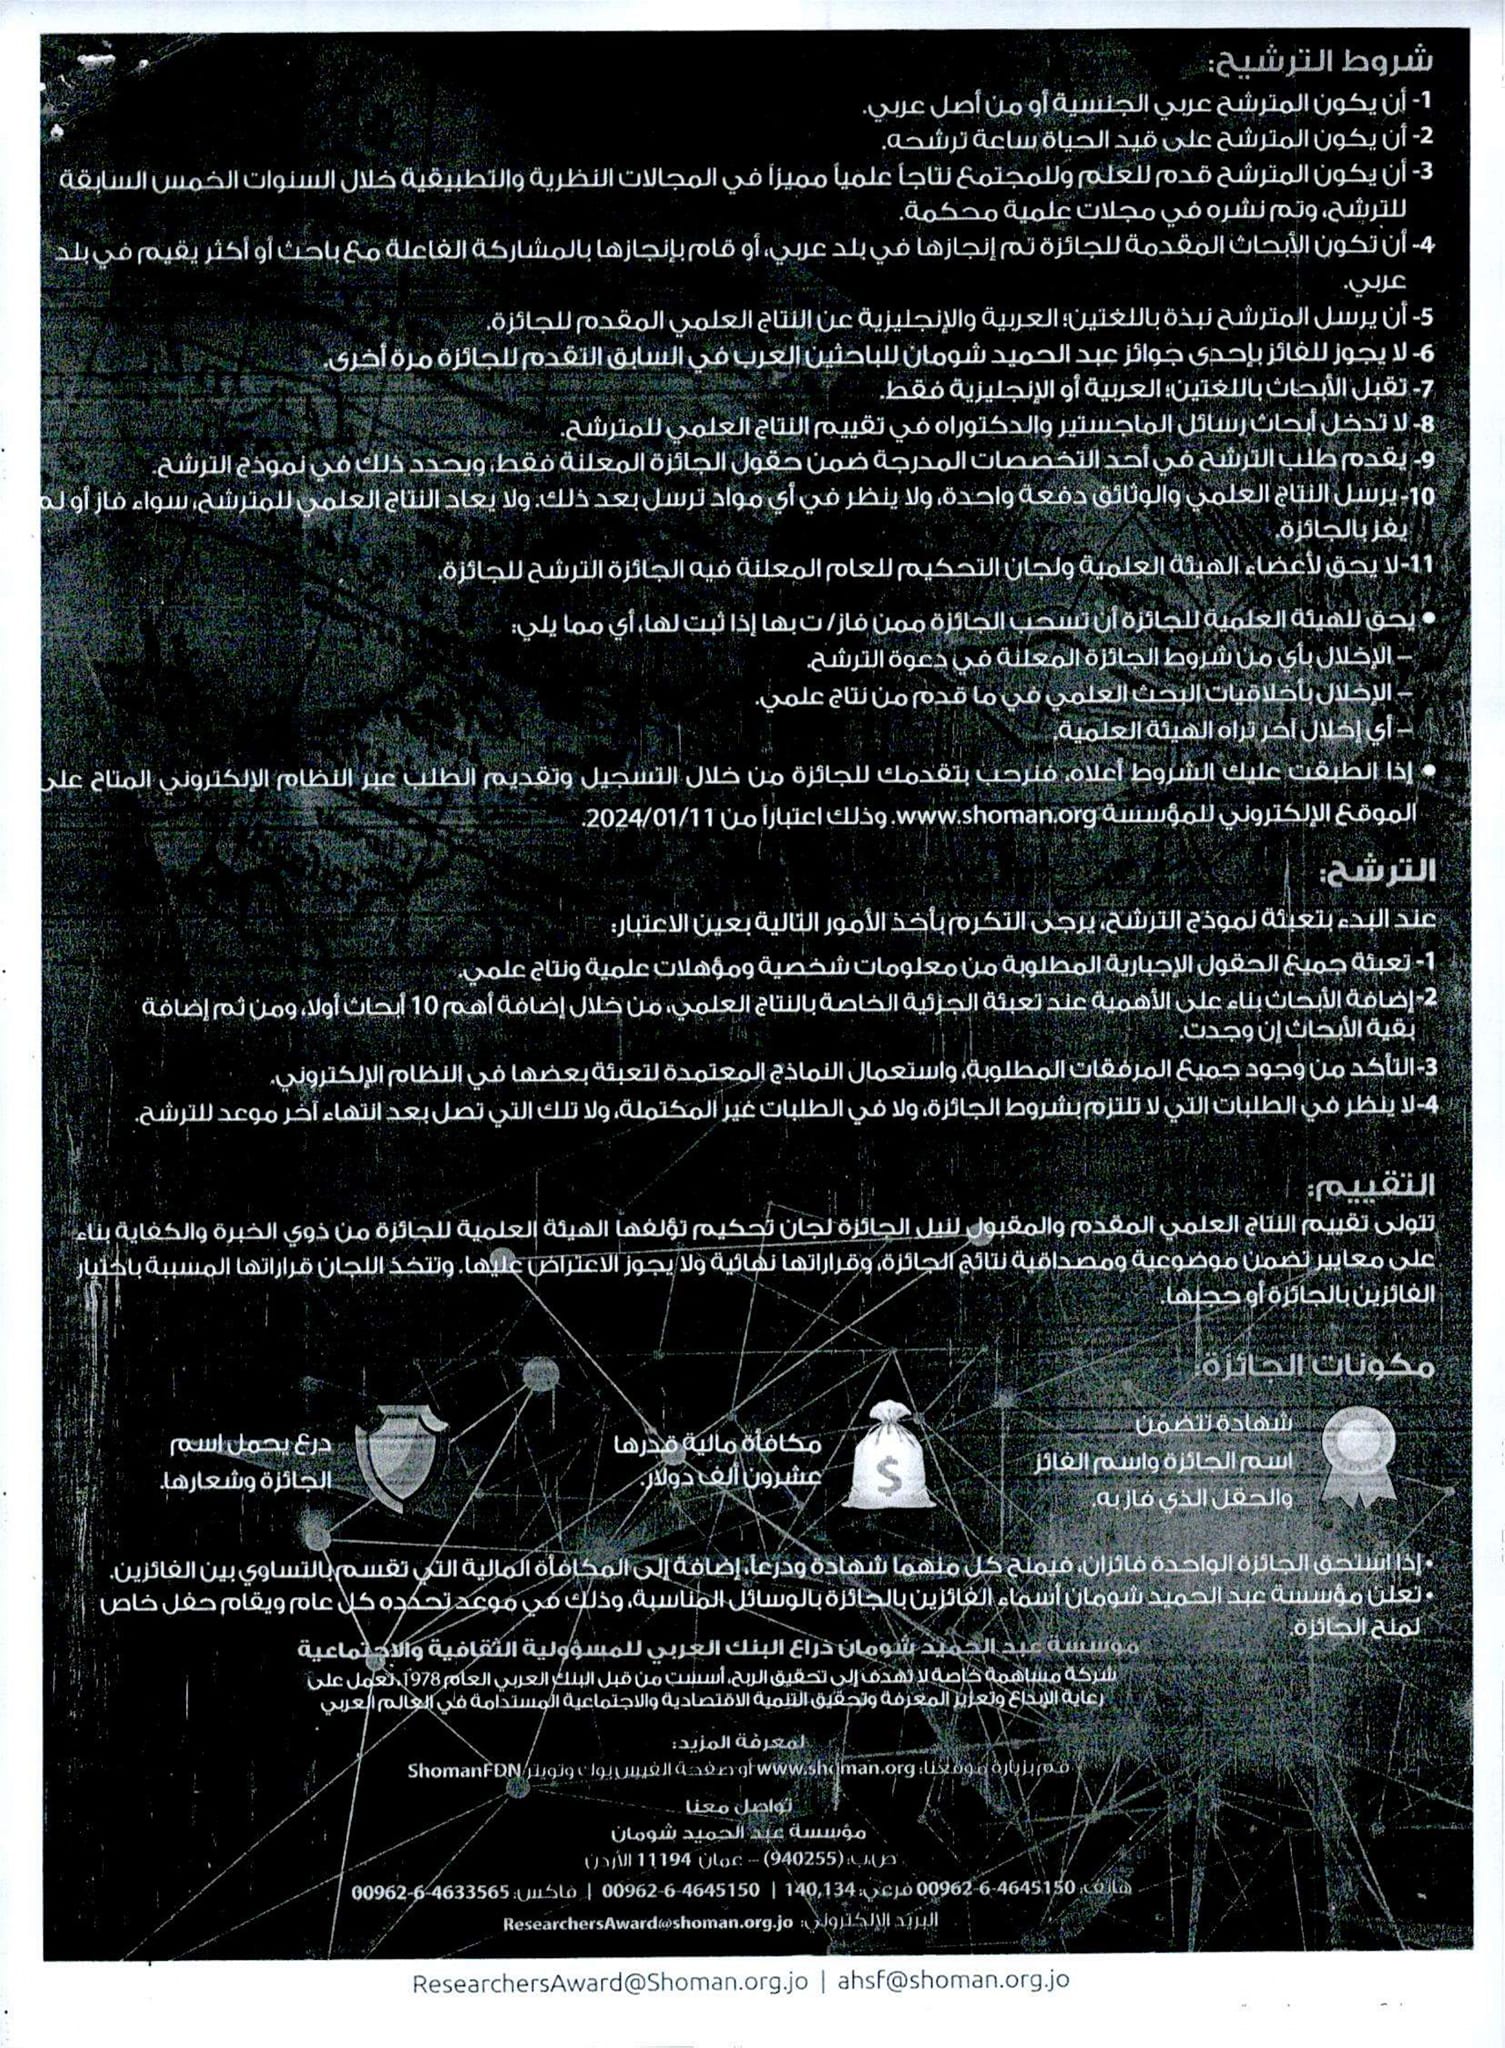 شروط الترشيح:
1- أن يكون المترشح عربي الجنسية أو من أصل عربي.
2- أن يكون المترشح على قيد الحياة ساعة ترشحه.
3- أن يكون المترشح قدم للعلم وللمجتمع نتاجاً علمياً مميزاً في المجالات النظرية والتطبيقية خلال السنوات الخمس السابقة
للترشح، وتم نشره في مجلات علمية محكمة.
4- أن تكون الأبحاث المقدمة للجائزة تم إنجازها في بلد عربي، أو قام بإنجازها بالمشاركة الفاعلة مع باحث أو أكثر يقيم في بلد
عربي.
5- أن يرسل المترشح نبذة باللغتين؛ العربية والإنجليزية عن النتاج العلمي المقدم للجائزة.
6- لا يجوز للفائز بإحدى جوائز عبد الحميد شومان للباحثين العرب في السابق التقدم للجائزة مرة أخرى.
7- تقبل الأبحاث باللغتين؛ العربية أو الإنجليزية فقط.
8- لا تدخل أبحاث رسائل الماجستير والدكتوراه في تقييم النتاج العلمي للمترشح.
9- يقدم طلب الترشح في أحد التخصصات المدرجة ضمن حقول الجائزة المعلنة فقط، ويحدد ذلك في نموذج الترشح.
10- يرسل النتاج العلمي والوثائق دفعة واحدة، ولا ينظر في أي مواد ترسل بعد ذلك. ولا يعاد النتاج العلمي للمترشح، سواء فاز أو لم
يفز بالجائزة.
11- لا يحق لأعضاء الهيئة العلمية ولجان التحكيم للعام المعلنة فيه الجائزة الترشح للجائزة.
• يحق للهيئة العلمية للجائزة أن تسحب الجائزة ممن فاز/ت بها إذا ثبت لها، أي مما يلي:
– الإخلال بأي من شروط الجائزة المعلنة في دعوة الترشح.
– الإخلال بأخلاقيات البحث العلمي في ما قدم من نتاج علمي.
– أي إخلال آخر تراه الهيئة العلمية.
• إذا انطبقت عليك الشروط أعلاه، فنرحب بتقدمك للجائزة من خلال التسجيل وتقديم الطلب عبر النظام الإلكتروني المتاح على
الموقع الإلكتروني للمؤسسة www.shoman.org، وذلك اعتباراً من 2024/01/11.
الترشح:
عند البدء بتعبئة نموذج الترشح، يرجى التكرم بأخذ الأمور التالية بعين الاعتبار:
1- تعبئة جميع الحقول الإجبارية المطلوبة من معلومات شخصية ومؤهلات علمية ونتاج علمي.
2- إضافة الأبحاث بناء على الأهمية عند تعبئة الجزئية الخاصة بالنتاج العلمي، من خلال إضافة أهم 10 أبحاث أولا، ومن ثم إضافة
بقية الأبحاث إن وجدت.
3- التأكد من وجود جميع المرفقات المطلوبة، واستعمال النماذج المعتمدة لتعبئة بعضها في النظام الإلكتروني.
4- لا ينظر في الطلبات التي لا تلتزم بشروط الجائزة، ولا في الطلبات غير المكتملة، ولا تلك التي تصل بعد انتهاء آخر موعد للترشح.
التقييم:
تتولى تقييم النتاج العلمي المقدم والمقبول لنيل الجائزة لجان تحكيم تؤلفها الهيئة العلمية للجائزة من ذوي الخبرة والكفاية بناء
على معايير تضمن موضوعية ومصداقية نتائج الجائزة، وقراراتها نهائية ولا يجوز الاعتراض عليها. وتتخذ اللجان قراراتها المسببة باختيار
الفائزين بالجائزة أو حجبها.
مكونات الجائزة:
شهادة تتضمن
اسم الجائزة واسم الفائز
والحقل الذي فاز به.
مكافأة مالية قدرها
عشرون ألف دولار.
درع يحمل اسم
الجائزة وشعارها.
• إذا استحق الجائزة الواحدة فائزان، فيمنح كل منهما شهادة ودرعاً، إضافة إلى المكافأة المالية التي تقسم بالتساوي بين الفائزين.
• تعلن مؤسسة عبد الحميد شومان أسماء الفائزين بالجائزة بالوسائل المناسبة، وذلك في موعد تحدده كل عام ويقام حفل خاص
لمنح الجائزة.
مؤسسة عبد الحميد شومان ذراع البنك العربي للمسؤولية الثقافية والاجتماعية
شركة مساهمة خاصة لا تهدف إلى تحقيق الربح، أسست من قبل البنك العربي العام 1978، تعمل على
رعاية الإبداع وتعزيز المعرفة وتحقيق التنمية الاقتصادية والاجتماعية المستدامة في العالم العربي
لمعرفة المزيد:
قم بزيارة موقعنا: www.shoman.org أو صفحة الفيس بوك وتويتر ShomanFDN
تواصل معنا
مؤسسة عبد الحميد شومان
ص.ب: (940255) – عمان 11194 الأردن
هاتف: 00962-6-4645150 فرعي: 140,134 | 00962-6-4645150 | فاكس: 00962-6-4633565
البريد الإلكتروني: ResearchersAward@shoman.org.jo
ResearchersAward@Shoman.org.jo | ahsf@shoman.org.jo